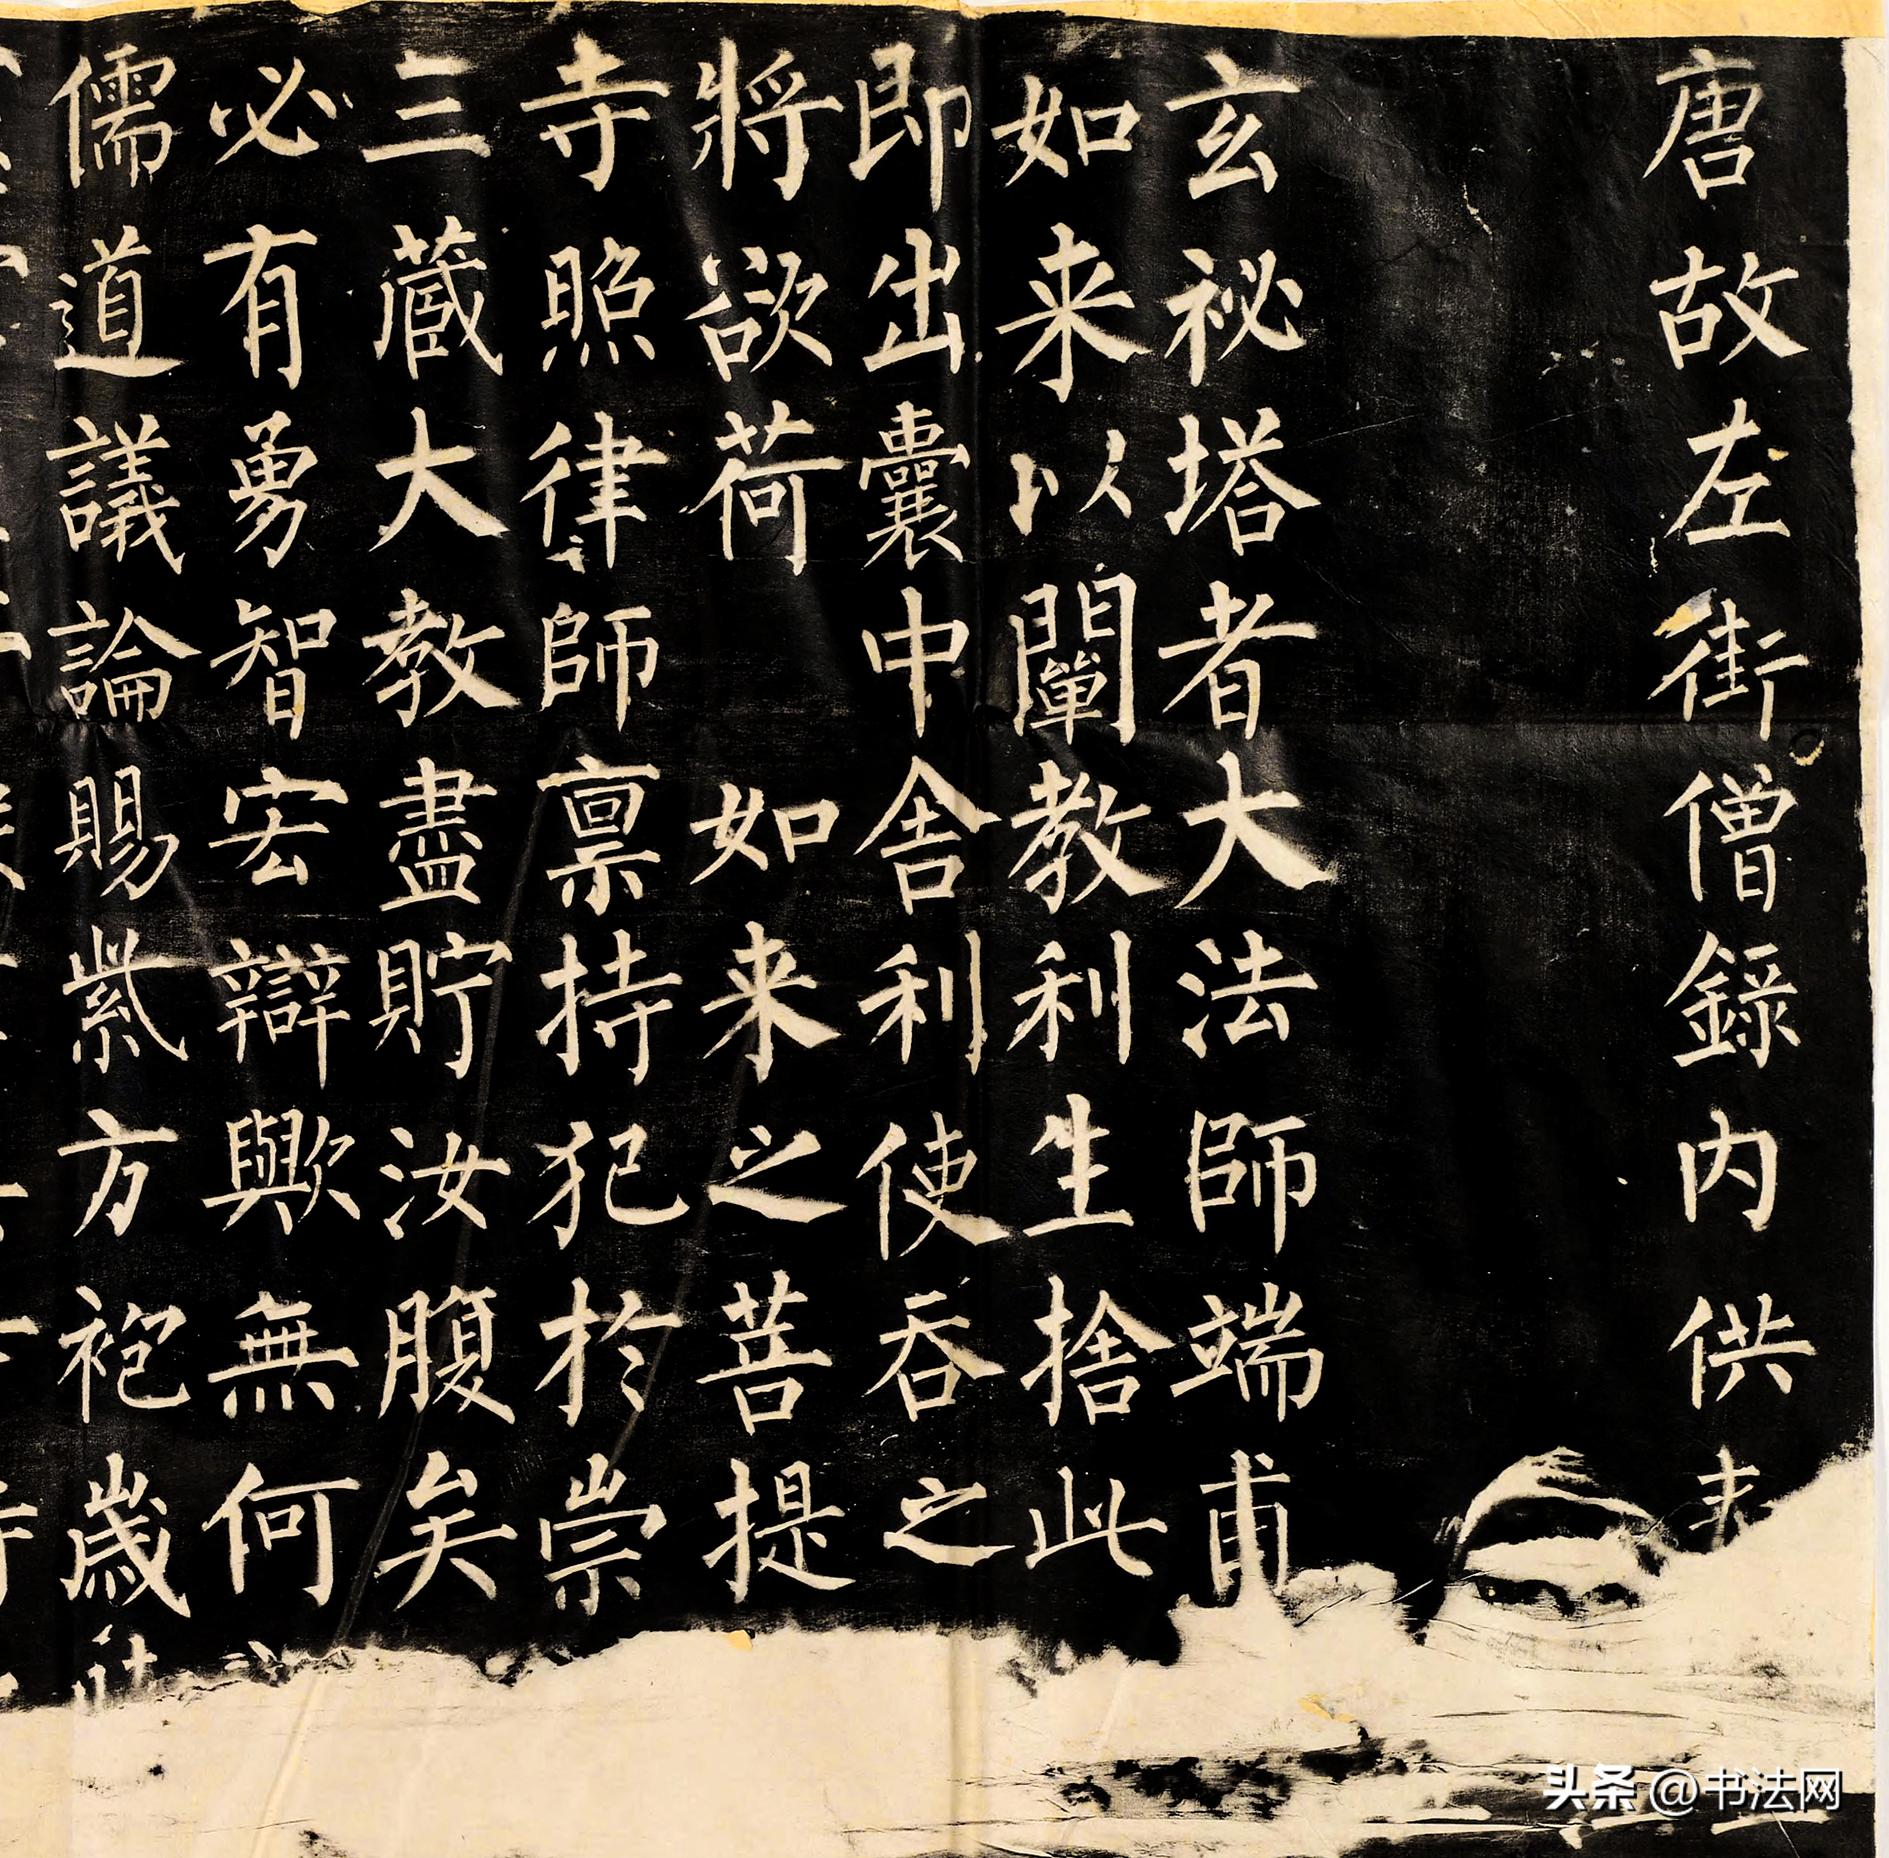 唐故左街僧錄內供
玄祕塔者大法師端甫
如来以闡教利生捨此
即出囊中舍利使吞之
將欲荷如来之菩提
寺照律師禀持犯於崇
三藏大教盡貯汝腹矣
必有勇智宏辯歟無何
儒道議論賜紫方袍歲
头条 @书法网